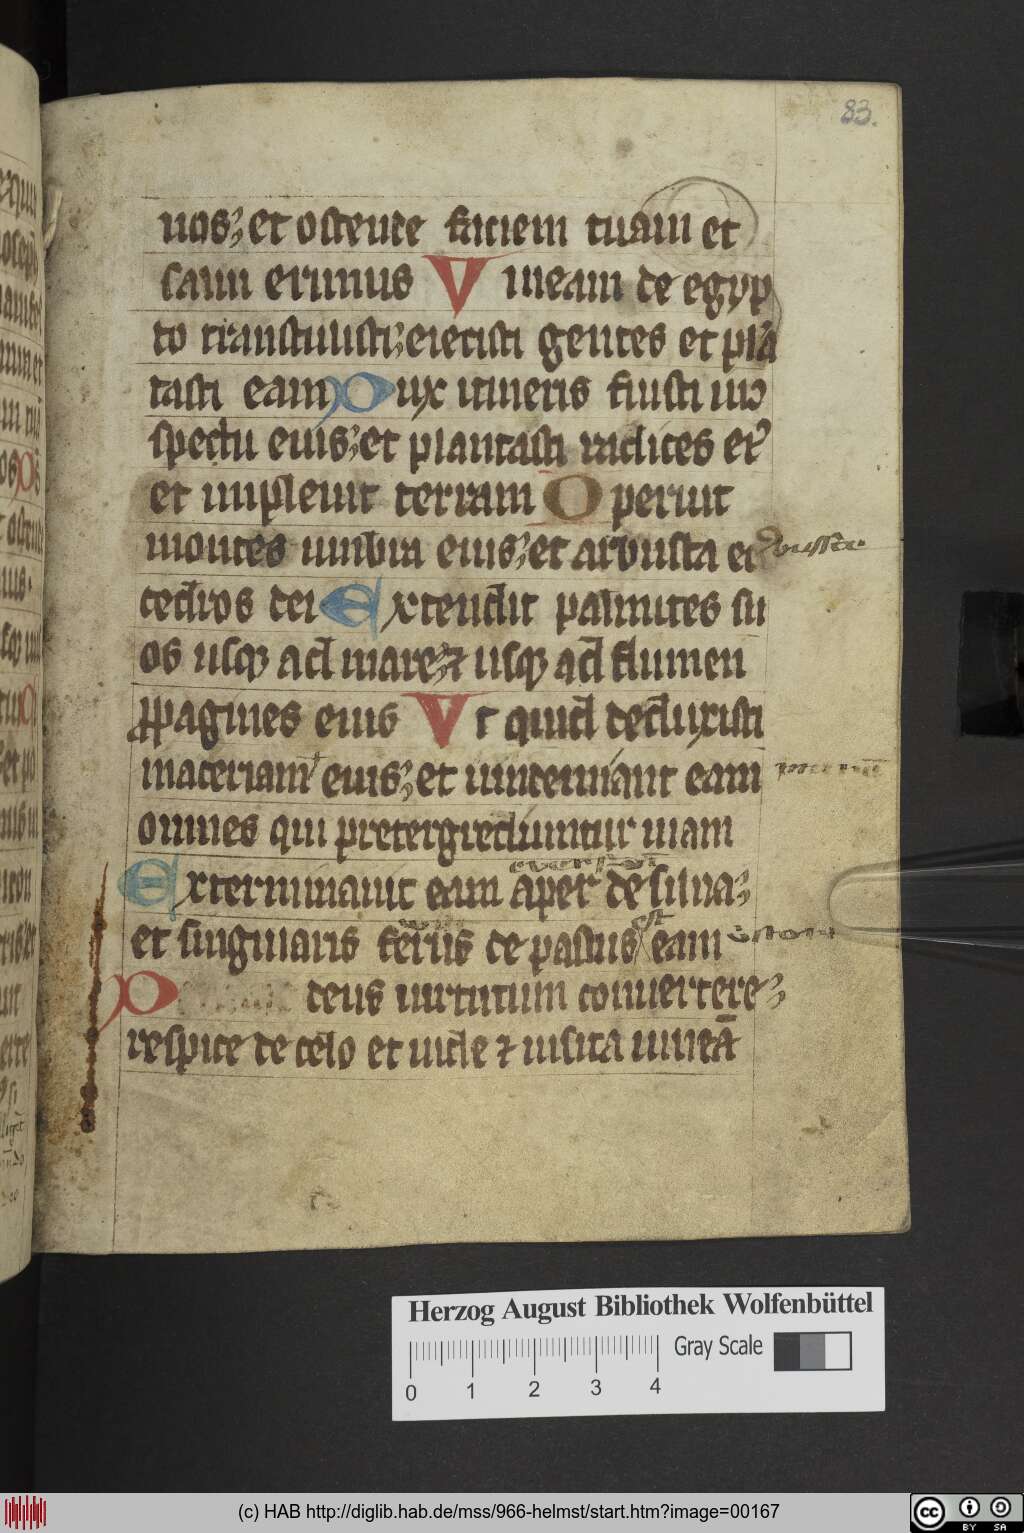 83.
nos; et ostende faciem tuam et
salui erimus Vineam de egyp
to transtulisti; eiecisti gentes et plā
tasti eam Dux itineris fuisti in
spectu eius; et plantasti radices ei᷒
et impleuit terram Operuit
montes umbra eius; et arbusta ei
cedros dei Extendit palmites su
os usq ad mare; ⁊ usq ad flumen
ꝓpagines eius Vt quid dexturxisti
materiam eius; et uindemiant eam
omnes qui pretergrediuntur uiam
Exterminauit eam aper de silua;
et singularis ferus depastus est eam
D deus uirtutum conuertere;
respice de celo et uide ⁊ uisita uineā
Herzog August Bibliothek Wolfenbüttel
Gray Scale
0 1 2 3 4
(c) HAB http://diglib.hab.de/mss/966-helmst/start.htm?image=00167
cc BY SA